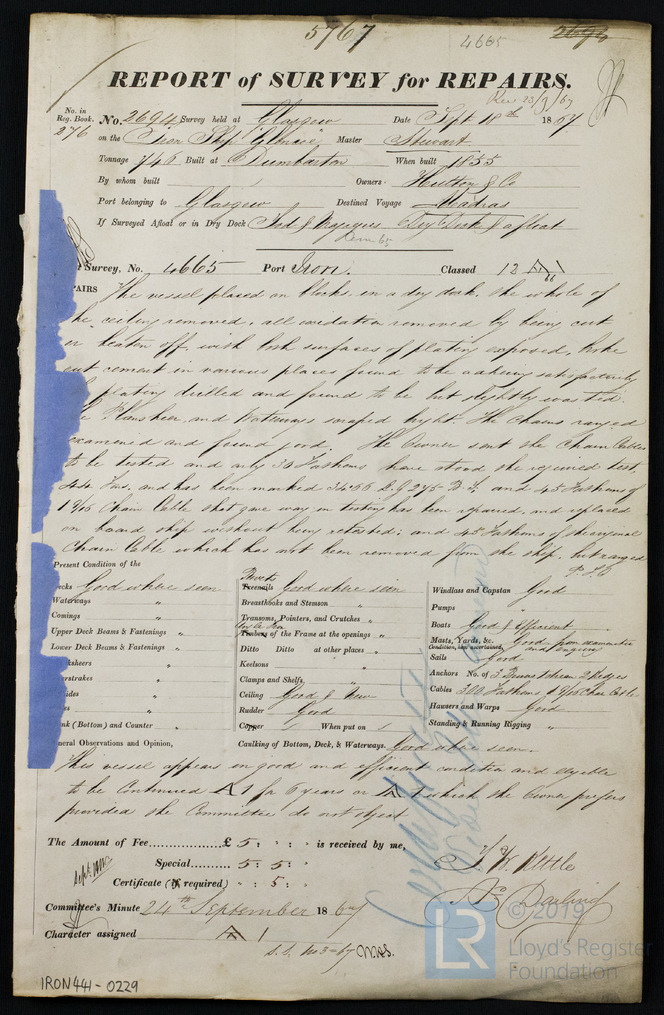 5767
4665
REPORT of SURVEY for REPAIRS.
Rec 23/9/67
No. in Reg. Book. 276
No. 2694 Survey held at Glasgow Date Sept 18th 1867
on the Iron Ship Master Stewart
Tonnage 746 Built at Dumbarton When built 1855
By whom built Owners Hutton & Co
Port belonging to Glasgow Destined Voyage Madras
If Surveyed Afloat or in Dry Dock Dry Dock & afloat
Survey, No. 4665 Port Iron. Classed
PAIRS The vessel placed on blocks in a dry dock, the whole of
ceiling removed, all oxidation removed by being cut
or beaten off, with both surfaces of plating exposed, broke
out cement in various places found to be adhering satisfactorily
plating drilled and found to be but slightly wasted.
and Waterways scraped bright. The Chains ranged
examined and found good. The Owner sent the Chain Cables
to be tested and only 30 Fathoms have stood the required test,
and has been marked and 45 Fathoms of
1 9/16 Chain Cable that gave way in testing has been repaired, and replaced
on board ship without being retested; and 45 Fathoms of the
Chain Cable which has not been removed from the ship, but ranged
Present Condition of the
ecks Good where seen
Waterways "
Comings "
Upper Deck Beams & Fastenings "
Lower Deck Beams & Fastenings "
ksheers "
erstrakes "
ides "
es "
nk (Bottom) and Counter "
Rivets
Treenails Good where seen
Breasthooks and Stemson "
Transoms, Pointers, and Crutches "
Timbers of the Frame at the openings "
Ditto Ditto at other places "
Keelsons "
Clamps and Shelfs "
Ceiling Good & New
Rudder Good
Copper When put on
Caulking of Bottom, Deck, & Waterways Good where seen.
Windlass and Capstan Good
Pumps "
Boats Good & Efficient
Masts, Yards, &c. Condition, how ascertained, Good from examination and enquiry
Sails Good
Anchors No. of 3 Bowers 1 Stream 2 Kedges
Cables 300 Fathoms 1 9/16 Chain Cable
Hawsers and Warps Good
Standing & Running Rigging "
neral Observations and Opinion,
This vessel appears in good and efficient condition and eligible
to be Continued A 1 for 6 years or A 1 which the Owner prefers
provided the Committee do not object
The Amount of Fee £ 5 : " : " is received by me,
Special 5 : 5 : "
Certificate (if required) " : 5 : "
Committee's Minute 24th September 1867
Character assigned A 1
S.S. No 3-67
IRON441-0229
© 2019
LR
Lloyd's Register
Foundation